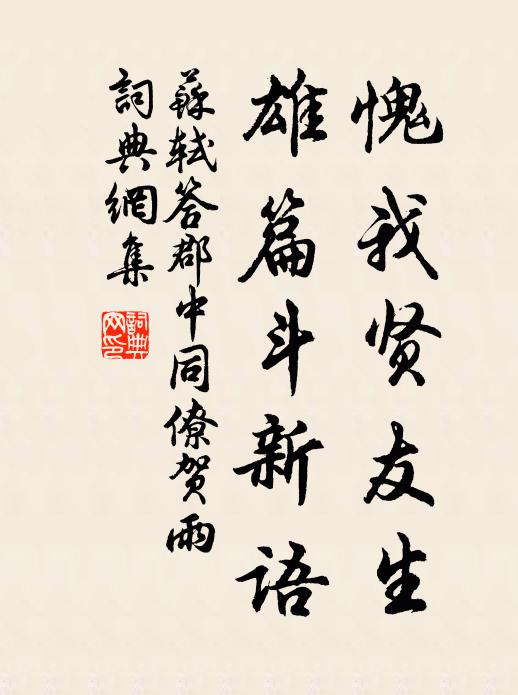 愧我贤友生
雄篇斗新语
蘇軾答郡中同僚贺雨
詞典網集
詞典
网印